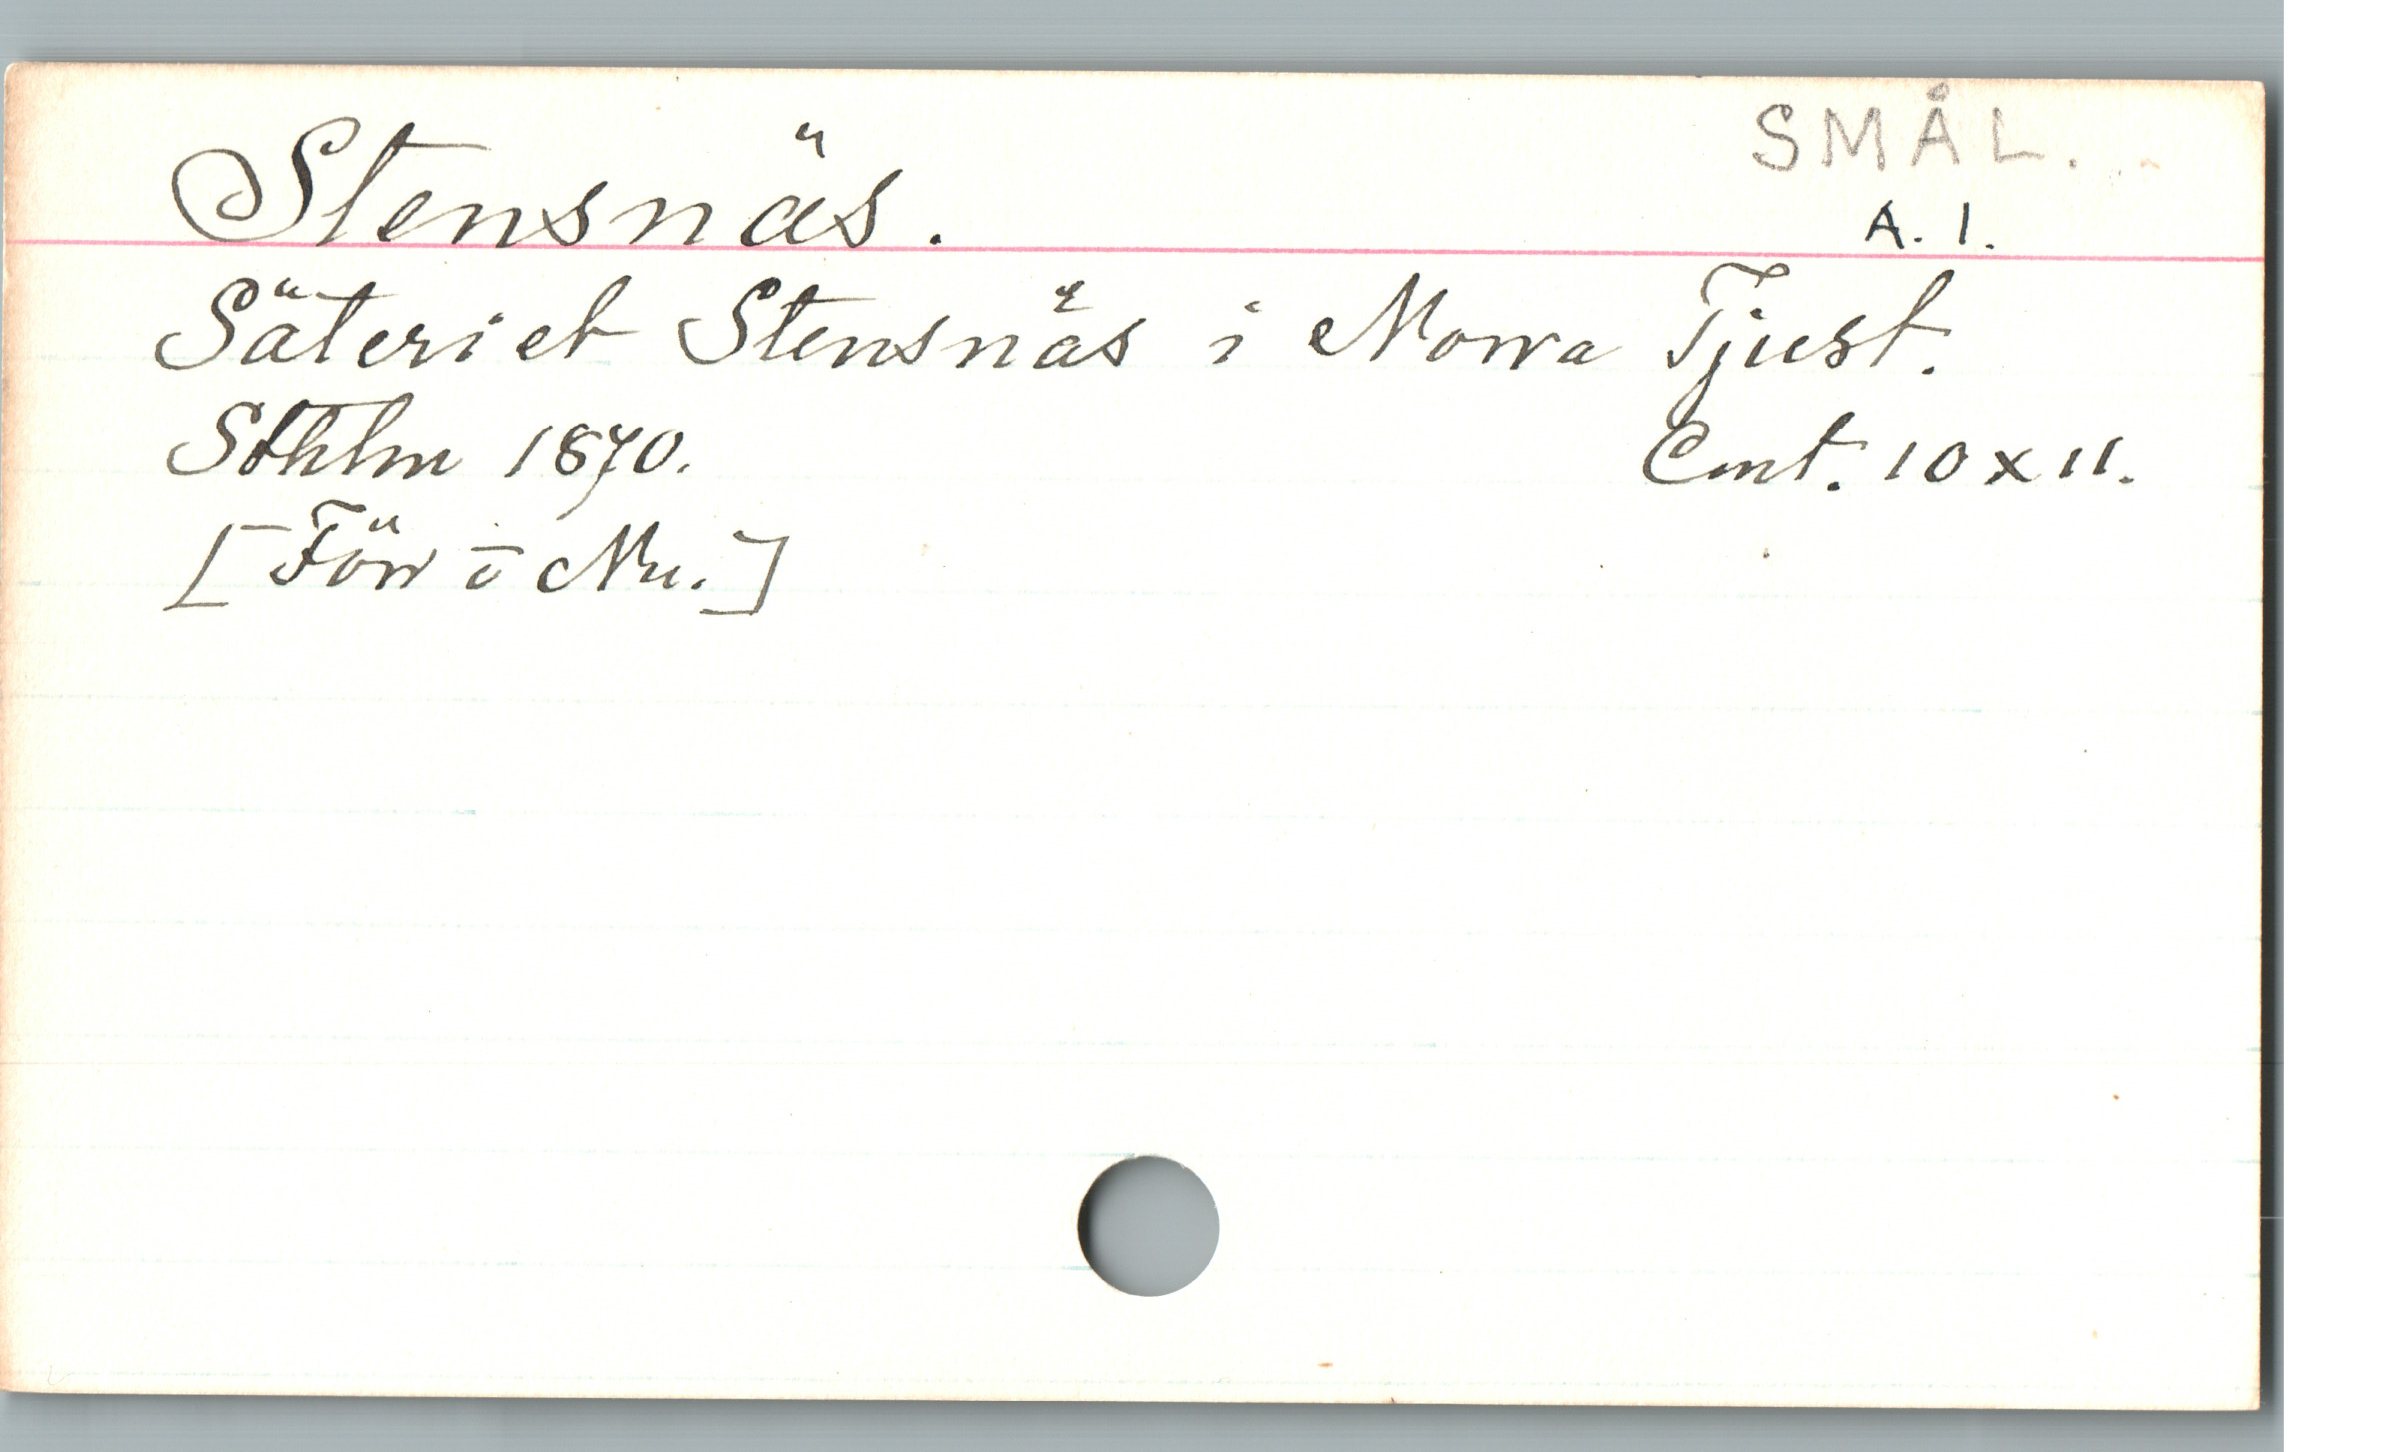 SMÅL.
Stensnäs.
A. 1.
Säteriet Stensnäs i Norra Tjust.
Sthlm 1870. Cmt. 10 x 11.
[Förr o Nu.]